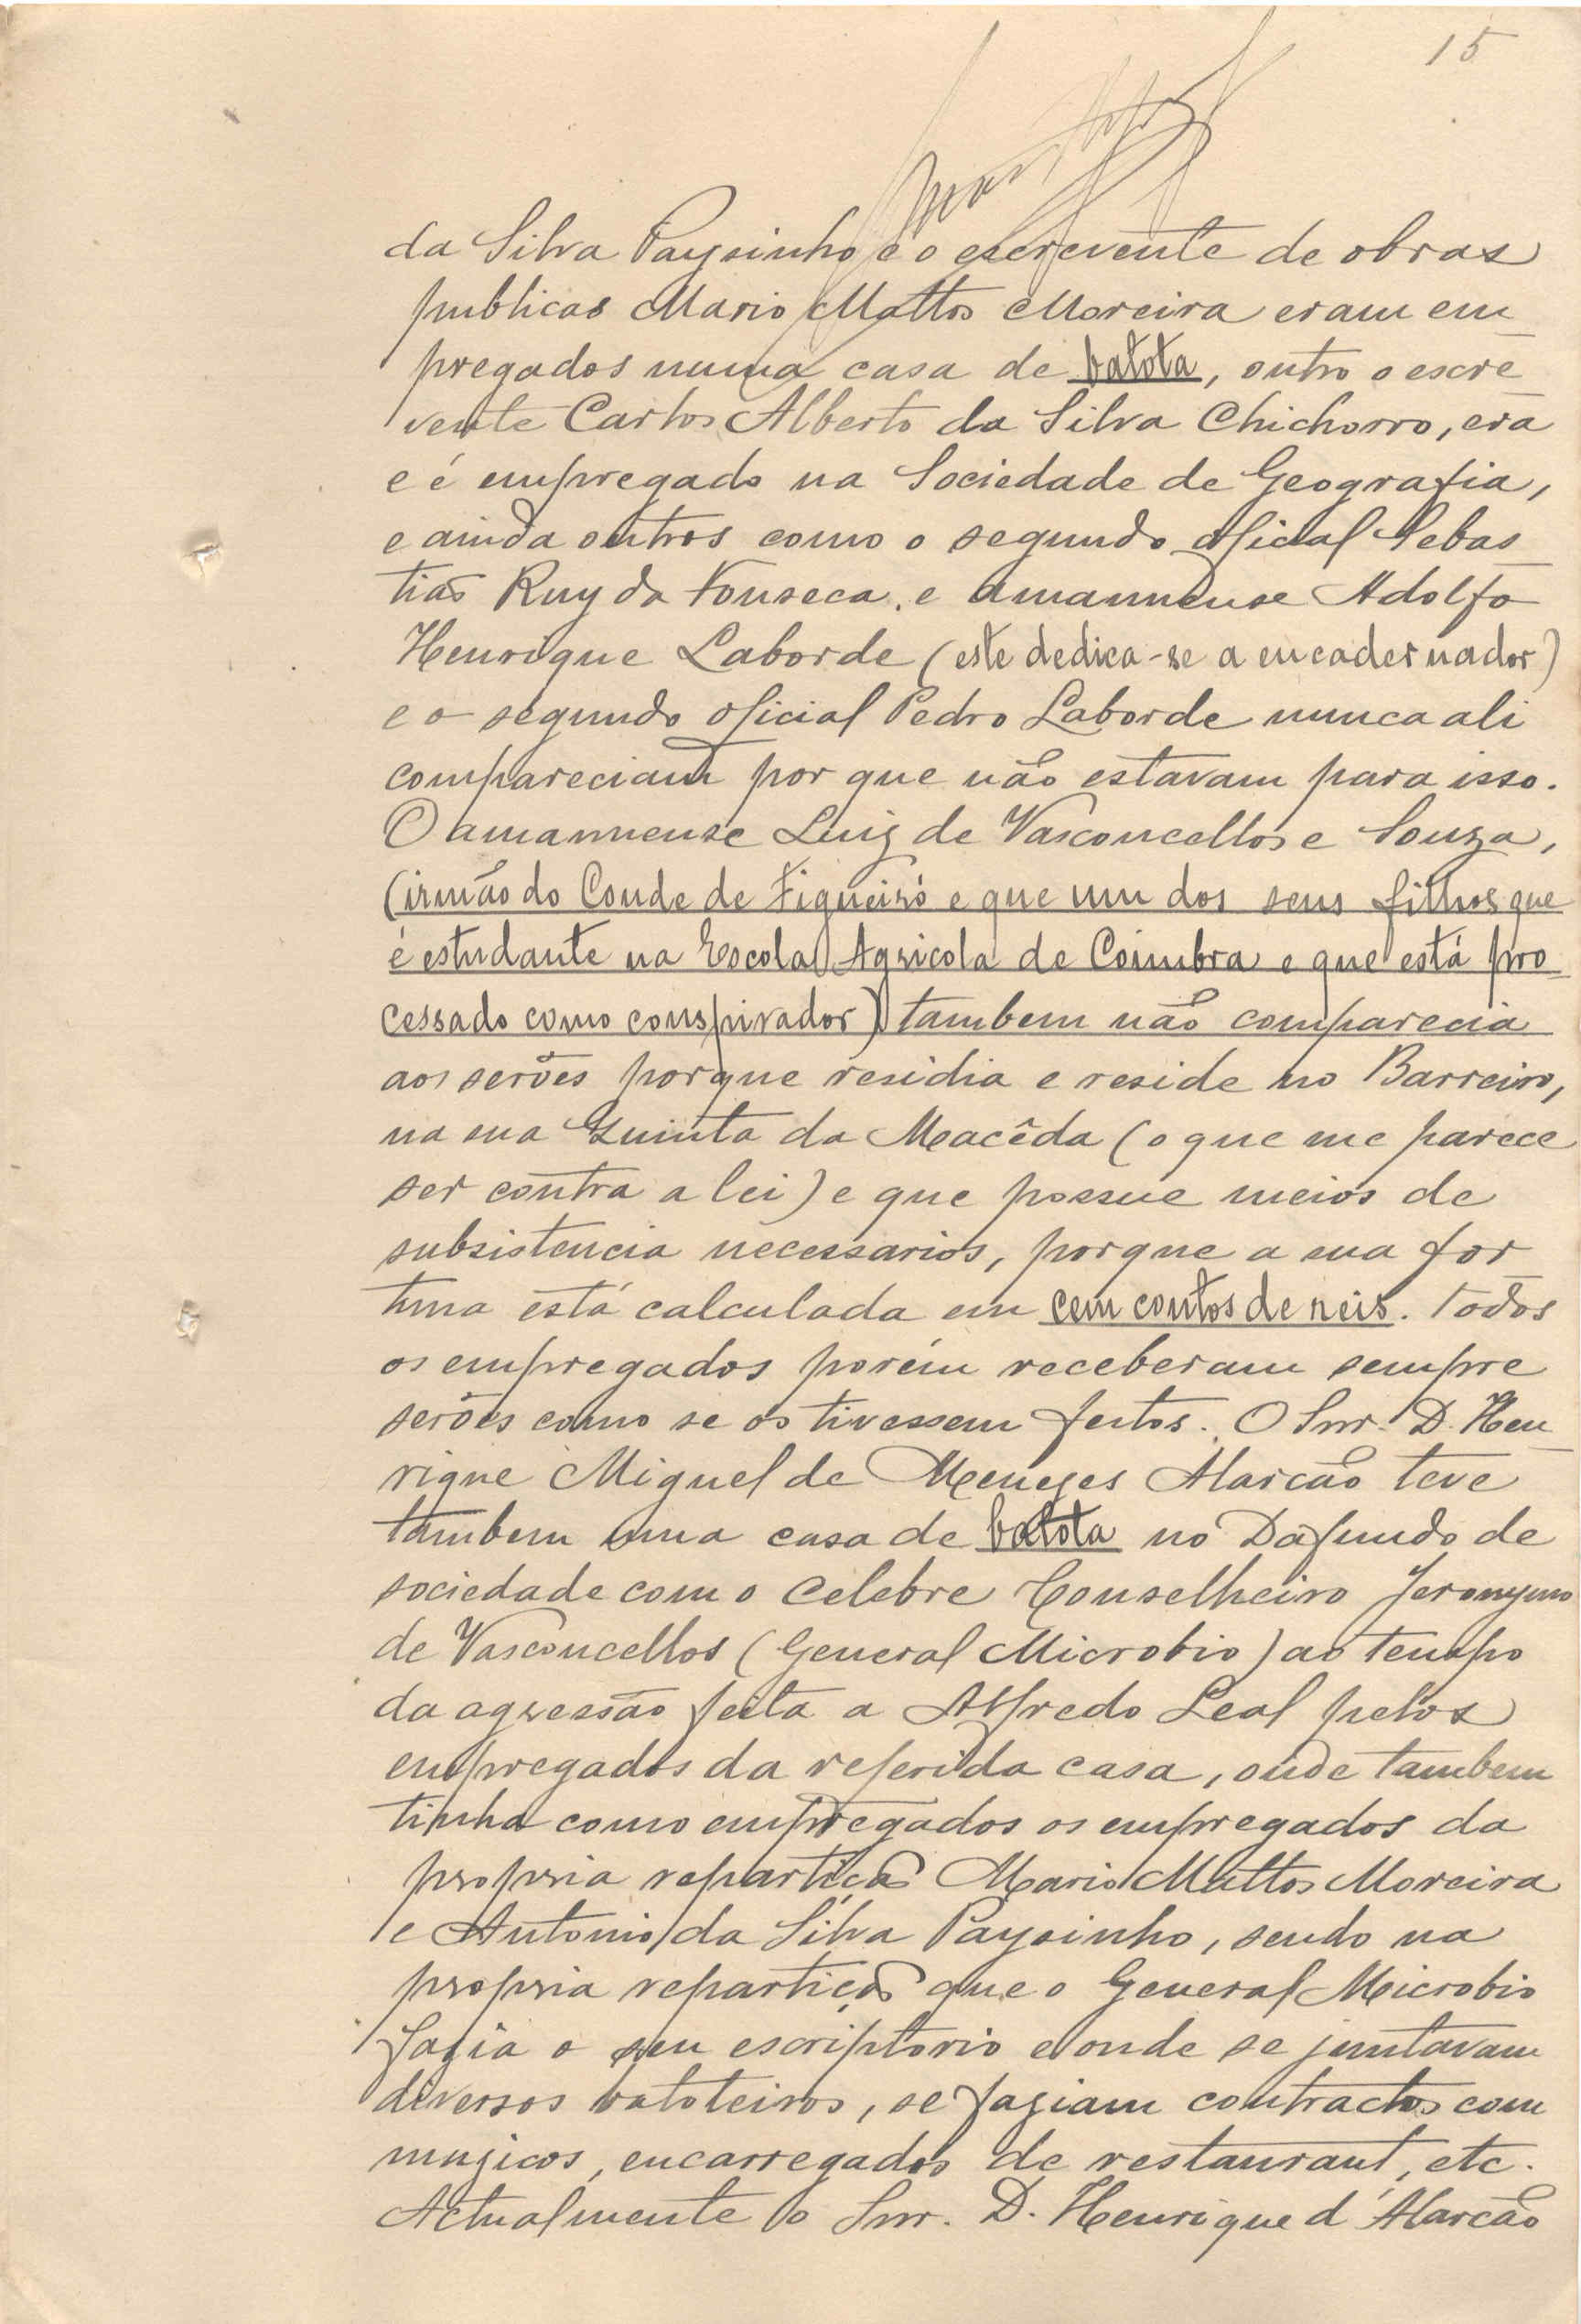 15
da Silva Paysinho e o escrevente de obras
publicas Mario Mattos Moreira eram em
pregados numa casa de batota, outro o escre
vente Carlos Alberto da Silva Chichorro, era
e é empregado na Sociedade de Geografia,
e ainda outros como o segundo oficial Sebas
tião Ruy da Fonseca, e amannuense Adolfo
Henrique Laborde (este dedica-se a encadernador)
e o segundo oficial Pedro Laborde nunca ali
compareciam por que não estavam para isso.
O amannuense Luiz de Vasconcellos e Souza,
(irmão do Conde de Figueiró e que um dos seus filhos que
é estudante na Escola Agricola de Coimbra e que está pro
cessado como conspirador) tambem não comparecia
aos serões porque residia e reside no Barreiro,
na sua Quinta da Macêda (o que me parece
ser contra a lei) e que possue meios de
subsistencia necessarios, porque a sua for
tuna está calculada em cem contos de reis. Todos
os empregados porém receberam sempre
serões como se os tivessem feitos. O Snr. D. Hen
rique Miguel de Menezes Alarcão teve
tambem uma casa de batota no Dafundo de
sociedade com o celebre Conselheiro Jeronymo
de Vasconcellos (General Microbio) ao tempo
da agressão feita a Alfredo Leal pelos
empregados da referida casa, onde tambem
tinha como empregados os empregados da
propria repartição Mario Mattos Moreira
e Antonio da Silva Paysinho, sendo na
propria repartição que o General Microbio
fazia o seu escriptorio e onde se juntavam
diversos batoteiros, se faziam contractos com
muzicos, encarregados de restaurant, etc.
Actualmente o Snr. D. Henrique d'Alarcão